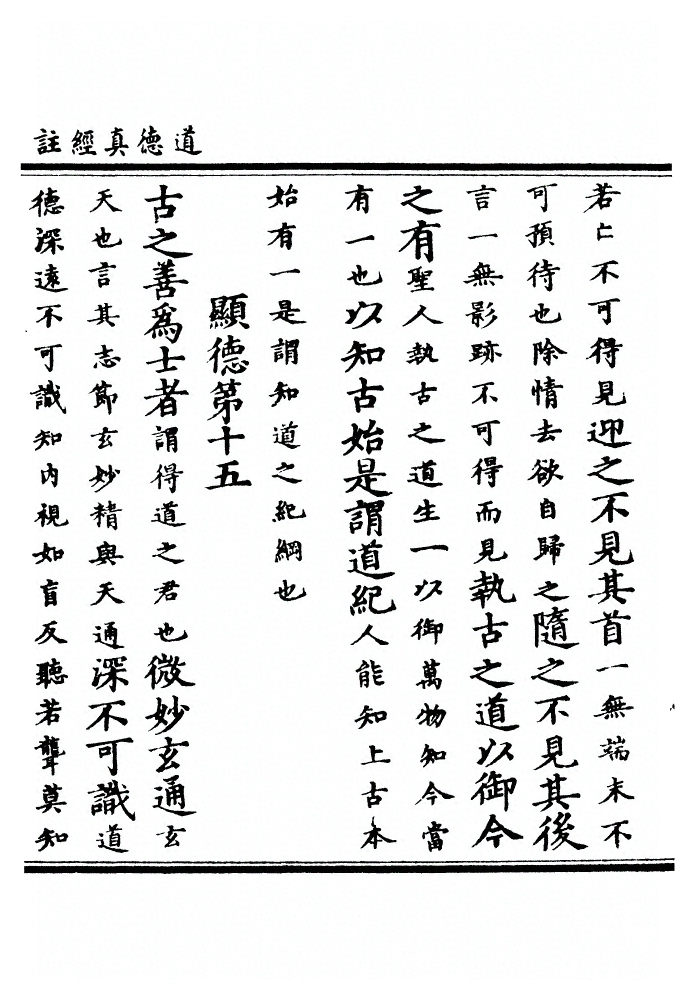 道德真經註
若亡不可得見迎之不見其首一無端末不
可預待也除情去欲自歸之隨之不見其後
言一無影跡不可得而見執古之道以御今
之有聖人執古之道生一以御萬物知今當
有一也以知古始是謂道紀人能知上古本
始有一是謂知道之紀綱也
顯德第十五
古之善為士者謂得道之君也微妙玄通玄
天也言其志節玄妙精與天通深不可識道
德深遠不可識知內視如盲反聽若聾莫知